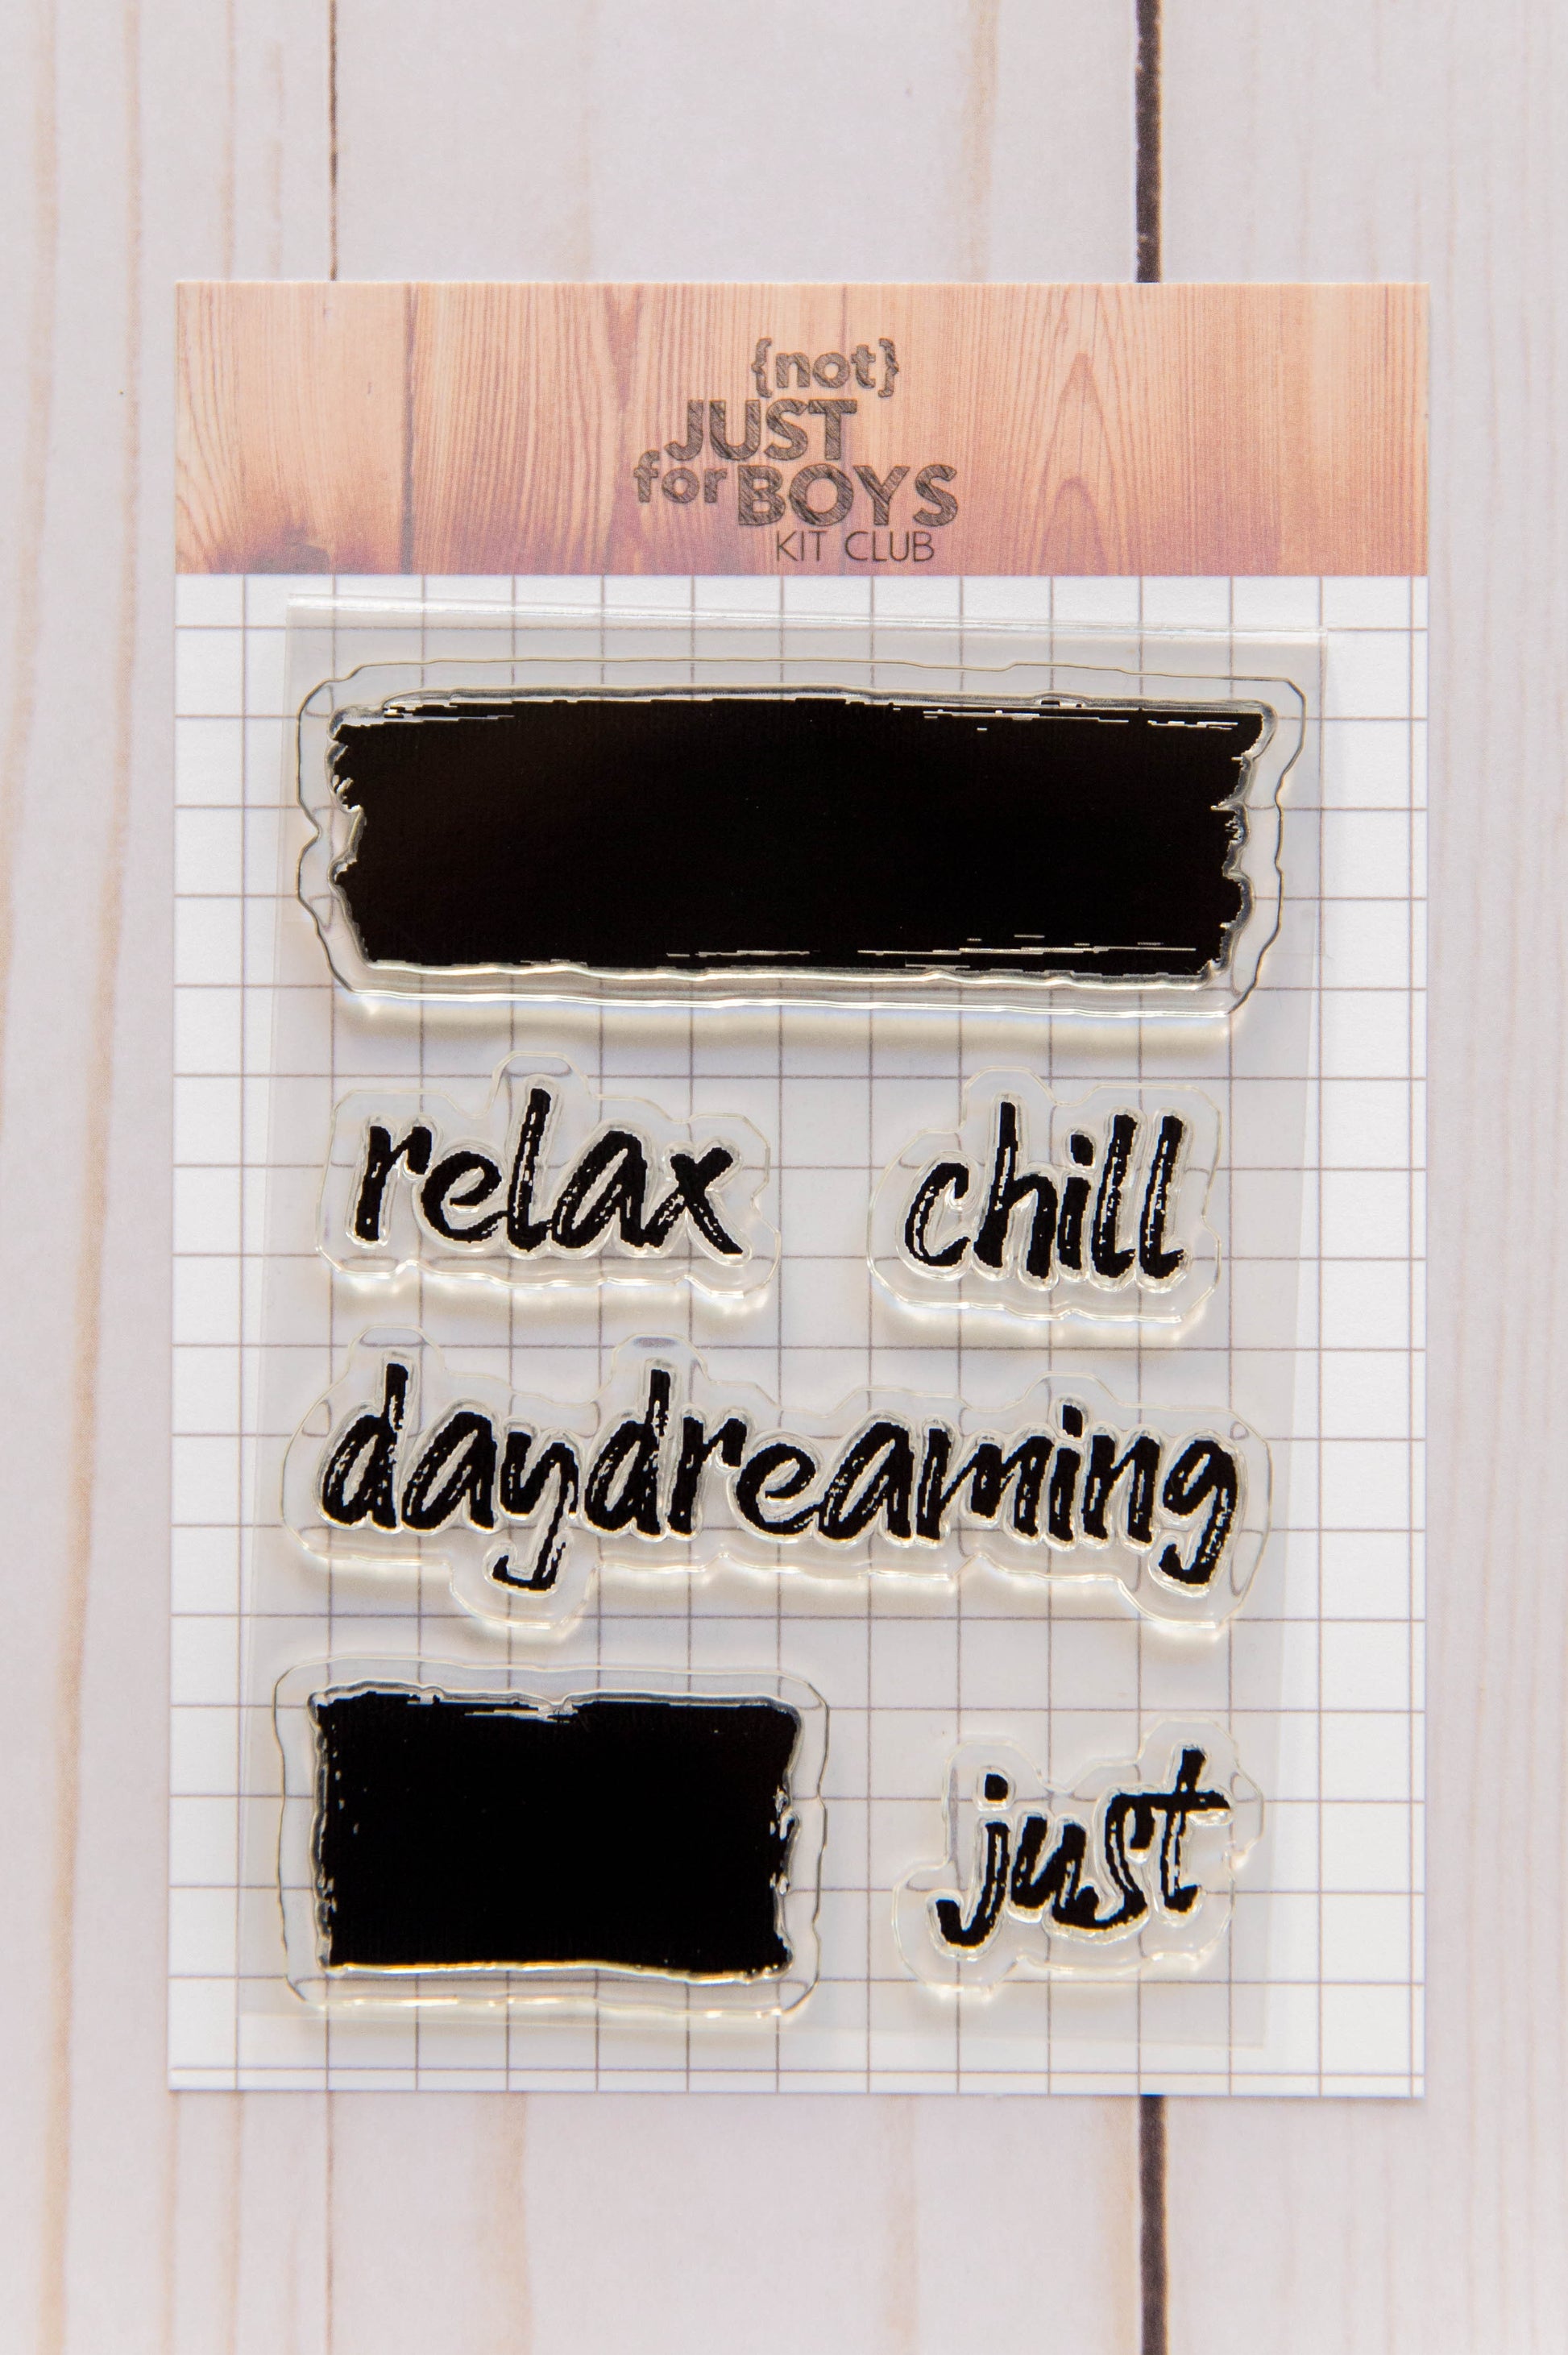 {not}
JUST
for BOYS
KIT CLUB
relax chill
daydreaming
just